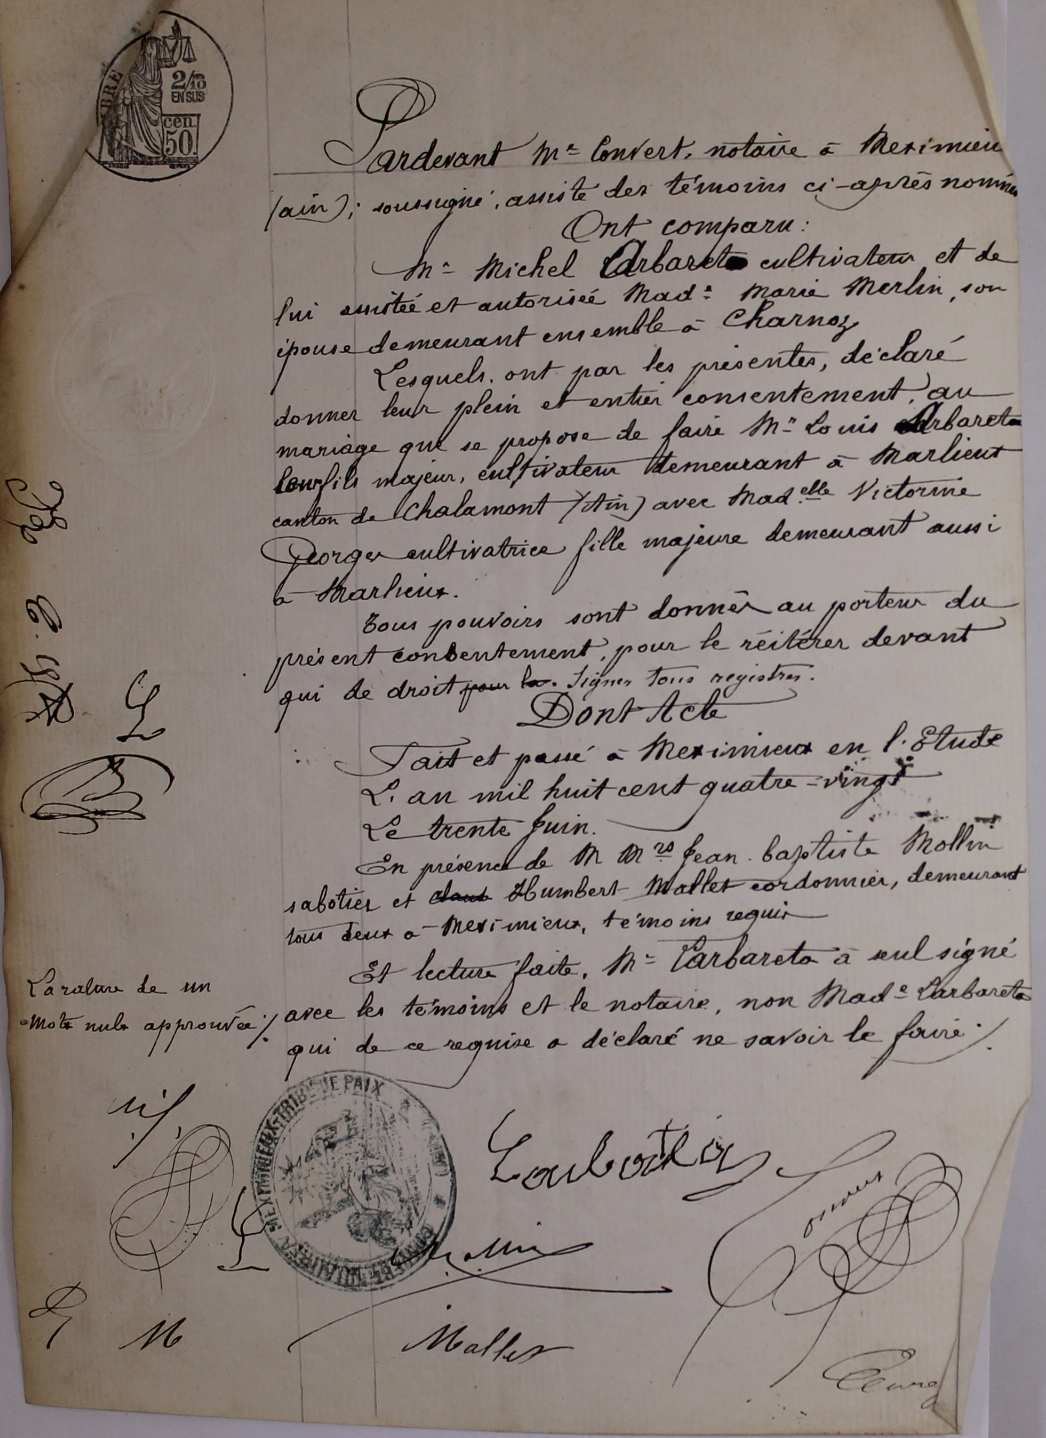 BRE
2/10
EN SUS
cen.
50.
Pardevant Me Convert, notaire à Meximieu
(ain); soussigné, assisté des témoins ci-après nommés
Ont comparu:
Mr Michel Carbareto cultivateur et de
lui assistée et autorisée Made Marie Merlin, son
épouse demeurant ensemble à Charnoz
Lesquels, ont par les présentes, déclaré
donner leur plein et entier consentement, au
mariage que se propose de faire Mr Louis Carbareto
leur fils majeur, cultivateur demeurant à Marlieux
canton de Chalamont (Ain) avec Madelle Victorine
Georges cultivatrice fille majeure demeurant aussi
à Marlieux.
Tous pouvoirs sont donnés au porteur du
présent consentement, pour le réitérer devant
qui de droit pour la. Signer tous registres.
Dont Acte
Fait et passé à Meximieux en l'Etude
L'an mil huit cent quatre-vingt
Le trente Juin.
En présence de M Mrs Jean-baptiste Mollin
sabotier et dans Humbert Mallet cordonnier, demeurant
tous deux à Meximieux, témoins requis
Et lecture faite, Mr Carbareto a seul signé
avec les témoins et le notaire, non Made Carbareto
qui de ce requise a déclaré ne savoir le faire./.
La rature de un
mots nuls approuvée./.
MEXIMIEUX-TRIB. DE PAIX
Mollin
Convert
M
Mallet